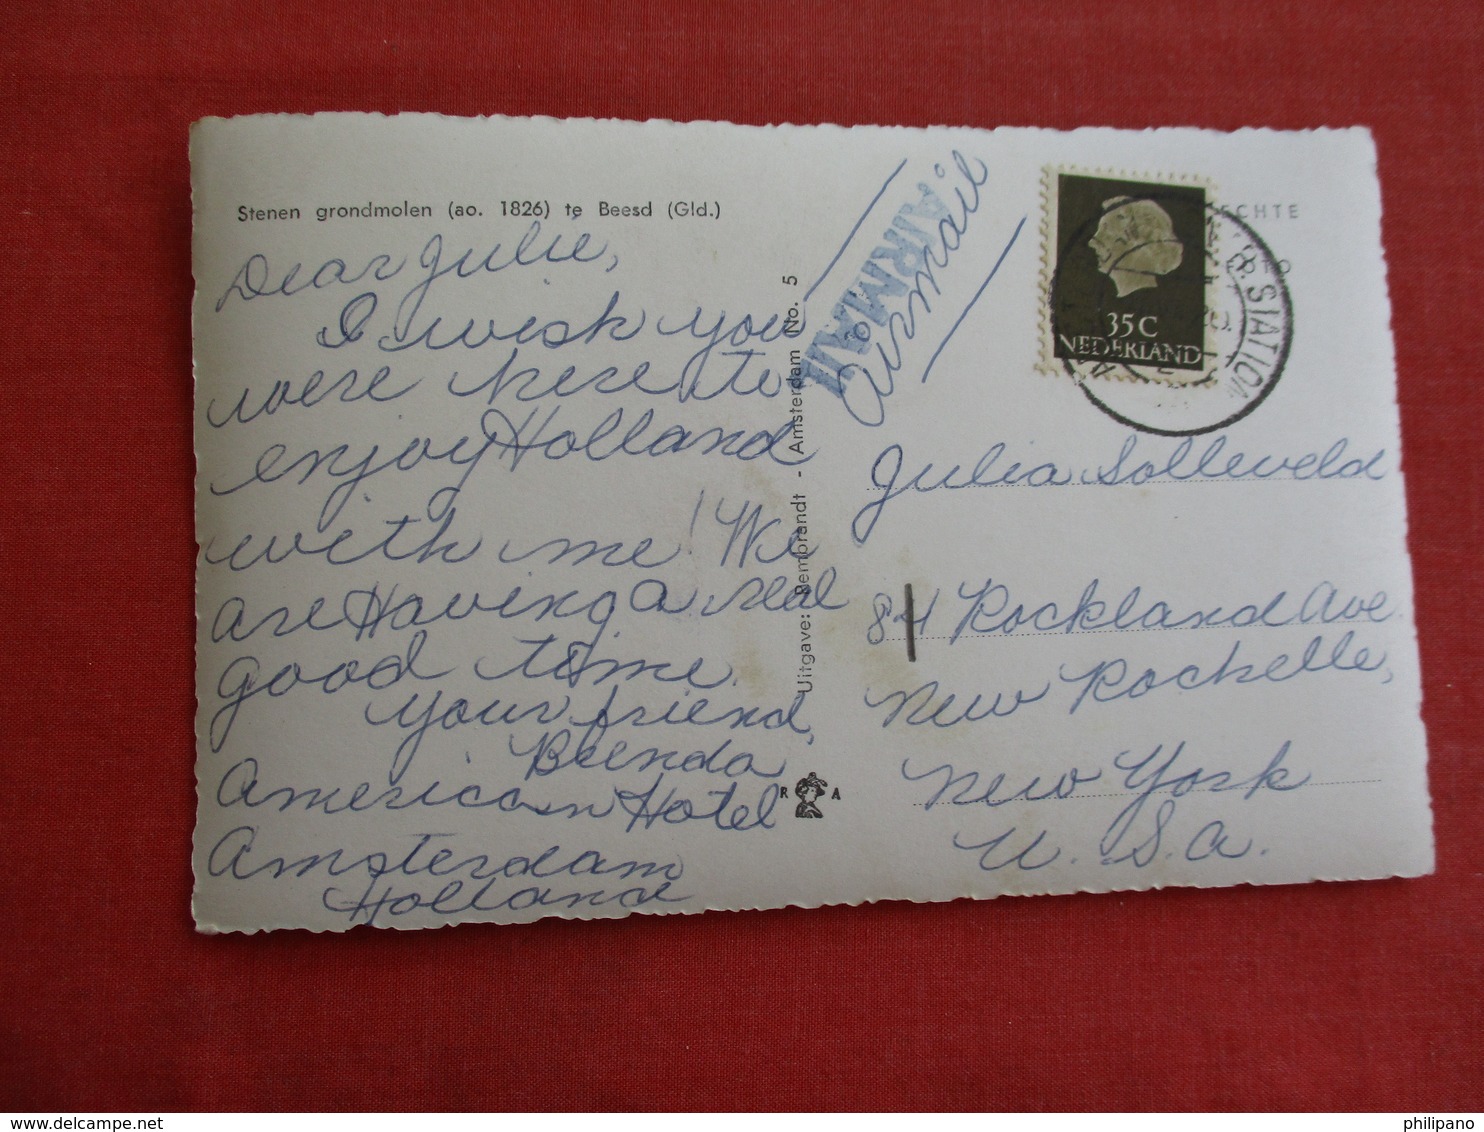 Stenen grondmolen (ao. 1826) te Beesd (Gld.)
Dear Julie,
I wish you
were here to
enjoy Holland
with me! We
are Having a real
good time.
Your friend,
Brenda
American Hotel
Amsterdam
Holland
Uitgave: Rembrandt - Amsterdam No. 5
R A
AIRMAIL
Airmail
ECHTE
TO
35C
NEDERLAND
STATION
Julia Solleveld
84 Rockland Ave.
New Rochelle,
New York
U.S.A.
http://www.delcampe.net
philipano